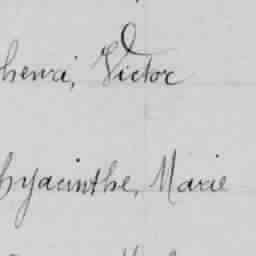 henri, Victor
hyacinthe, Marie